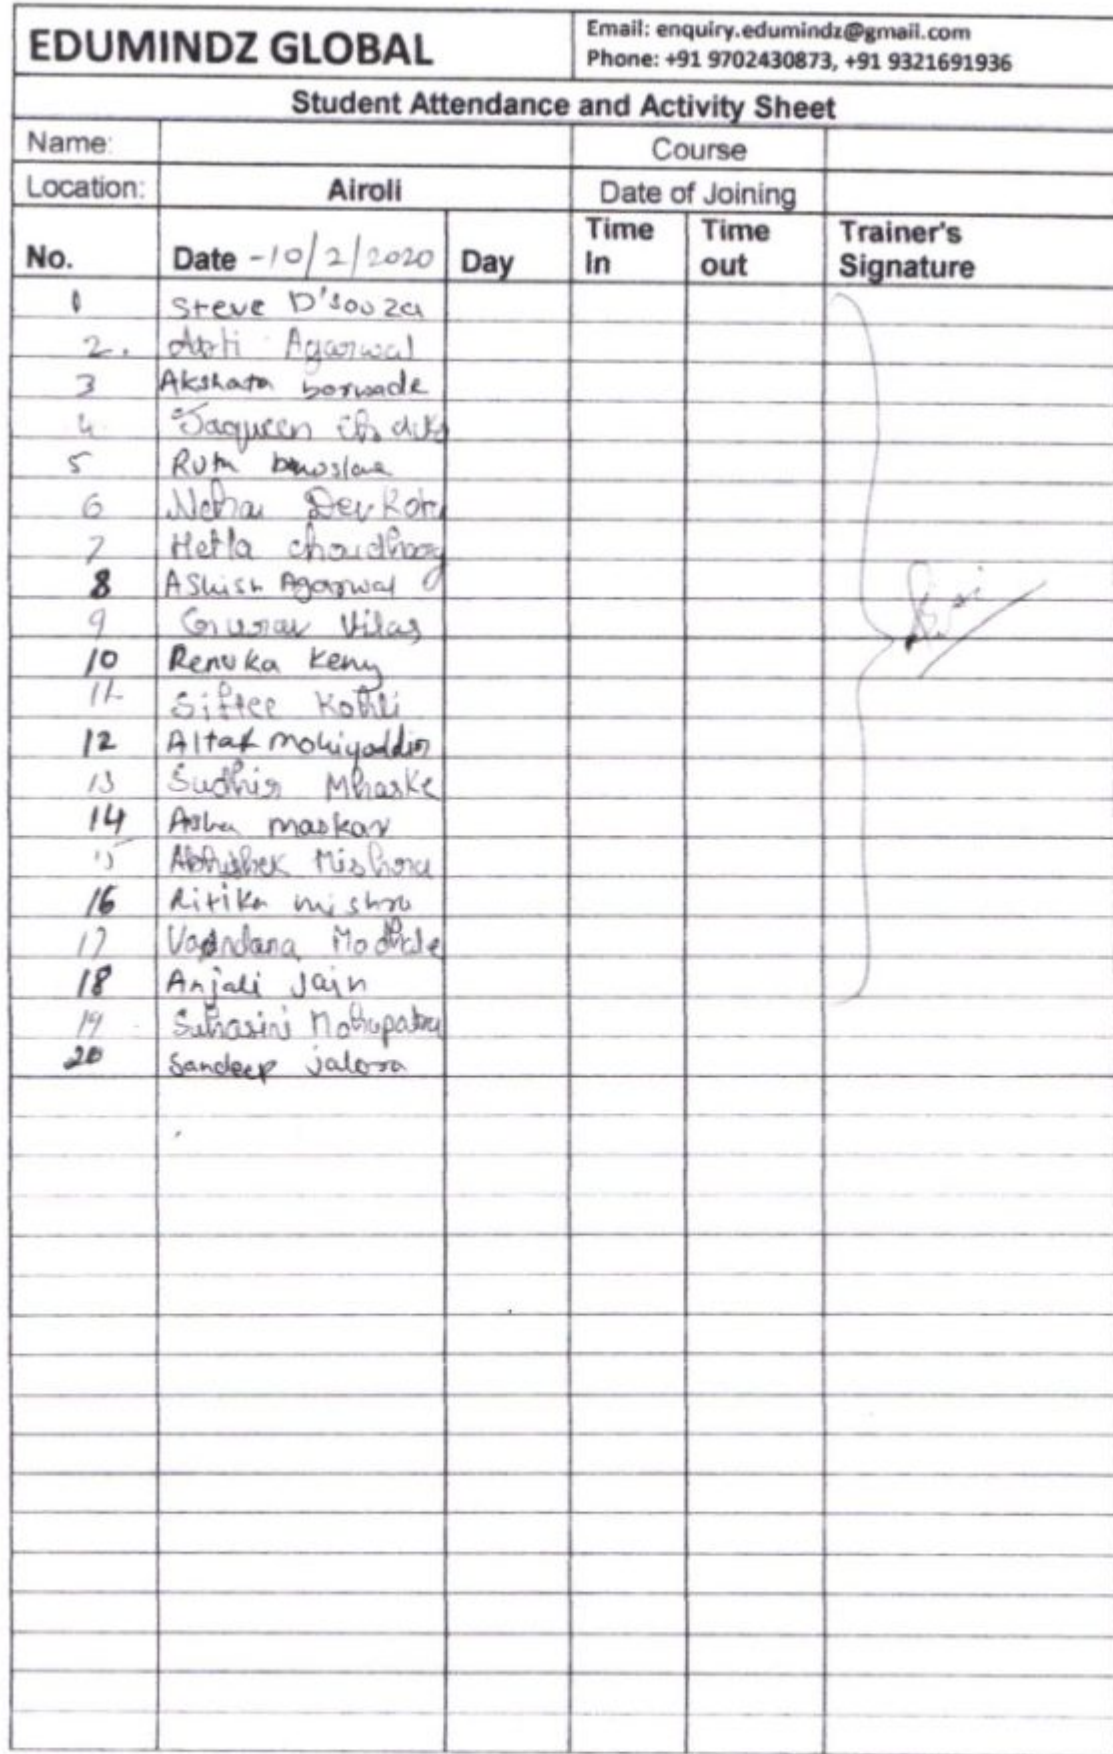 EDUMINDZ GLOBAL
Email: enquiry.edumindz@gmail.com
Phone: +91 9702430873, +91 9321691936
Student Attendance and Activity Sheet
Name: Course
Location: Airoli Date of Joining
No. Date -10/2/2020 Day Time In Time out Trainer's Signature
1 Steve D'souza
2. Arti Agarwal
3 Akshata borwade
4 Jaqueen
5
6 Neha Devkote
7 Hetla choudhary
8 Ashish Agarwal
9 Gurav Vilas
10 Renuka Keny
11 Siftee Kohli
12 Altaf Mohiyoddin
13 Sudhir Mharske
14 Asha maskar
15 Abhishek Mishra
16 Ritika mishra
17 Vandana Modhale
18 Anjali Jain
19 Suhasini Mohapatra
20 Sandeep jalora